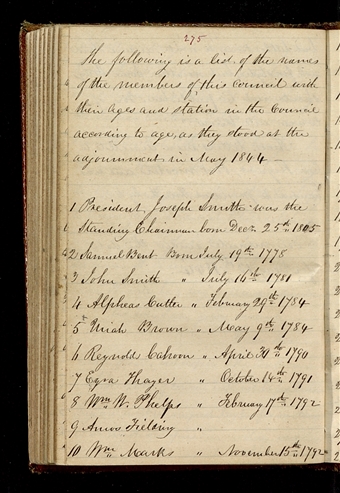 275
The following is a list of the names
of the members of this council with
their ages and station in the Council
according to age, as they stood at the
adjournment in May 1844 —
1 President Joseph Smith was the
Standing Chairman born Decr. 25th 1805
2 Samuel Bent Born July 19th 1778
3 John Smith " July 16th 1781
4 Alpheas Cutler " February 29th 1784
5 Uriah Brown " May 9th 1784
6 Reynolds Cahoon " April 30th 1790
7 Ezra Thayer " October 14th 1791
8 Wm W. Phelps " February 17th 1792
9 Amos Fielding "
10 Wm Marks " November 15th 1792